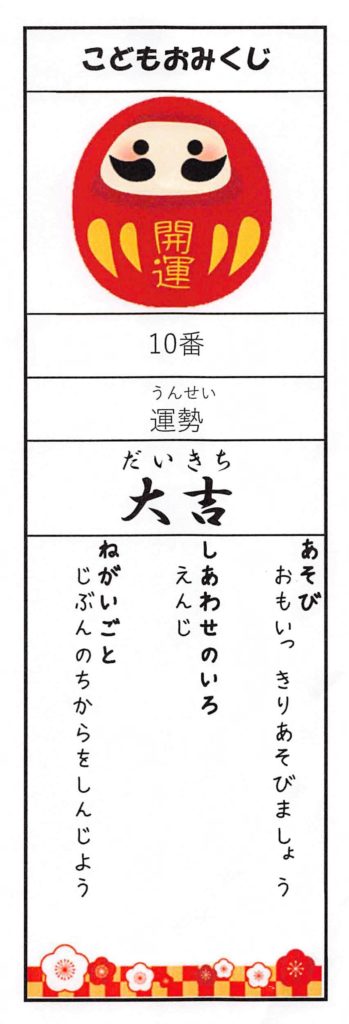 こどもおみくじ
開運
10番
うんせい
運勢
だいきち
大吉
あそび
おもいっきりあそびましょう
しあわせのいろ
えんじ
ねがいごと
じぶんのちからをしんじよう